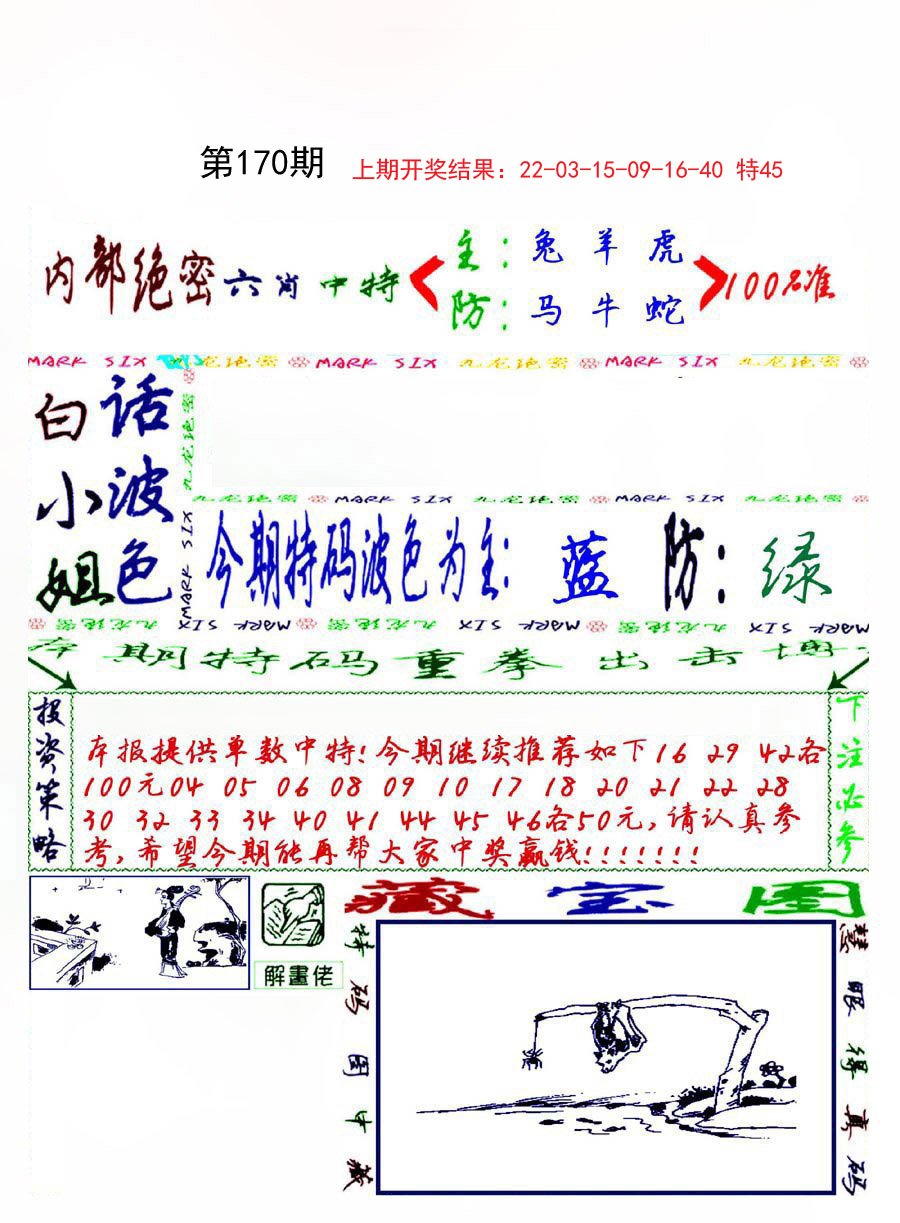 第170期 上期开奖结果：22-03-15-09-16-40 特45
内部绝密六肖中特
主：兔羊虎
防：马牛蛇
100%准
MARK SIX 九龙绝密 MARK SIX 九龙绝密 MARK SIX 九龙绝密
白小姐
话波色
九龙绝密 MARK SIX
九龙绝密 MARK SIX 九龙绝密 MARK SIX 九龙绝密
今期特码波色为主：蓝 防：绿
MARK SIX 九龙绝密 MARK SIX 九龙绝密 MARK SIX 九龙绝密
本期特码重拳出击博
投资策略
本报提供单数中特!今期继续推荐如下16 29 42各
100元04 05 06 08 09 10 17 18 20 21 22 28
30 32 33 34 40 41 44 45 46各50元,请认真参
考,希望今期能再帮大家中奖赢钱!!!!!!!
下注必参
解畫佬
藏宝图
特码图中藏
慧眼得真码